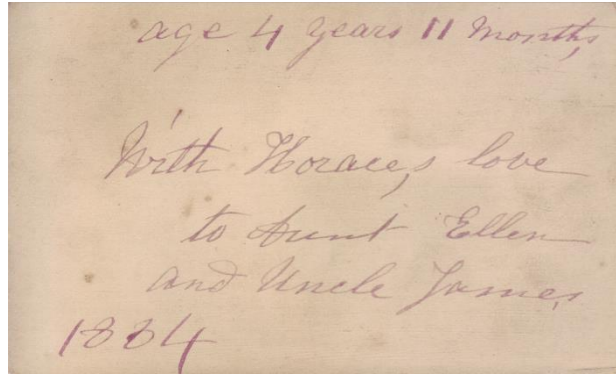 age 4 years 11 Months,
With Horace,s love
to Aunt Ellen
and Uncle James.
1884